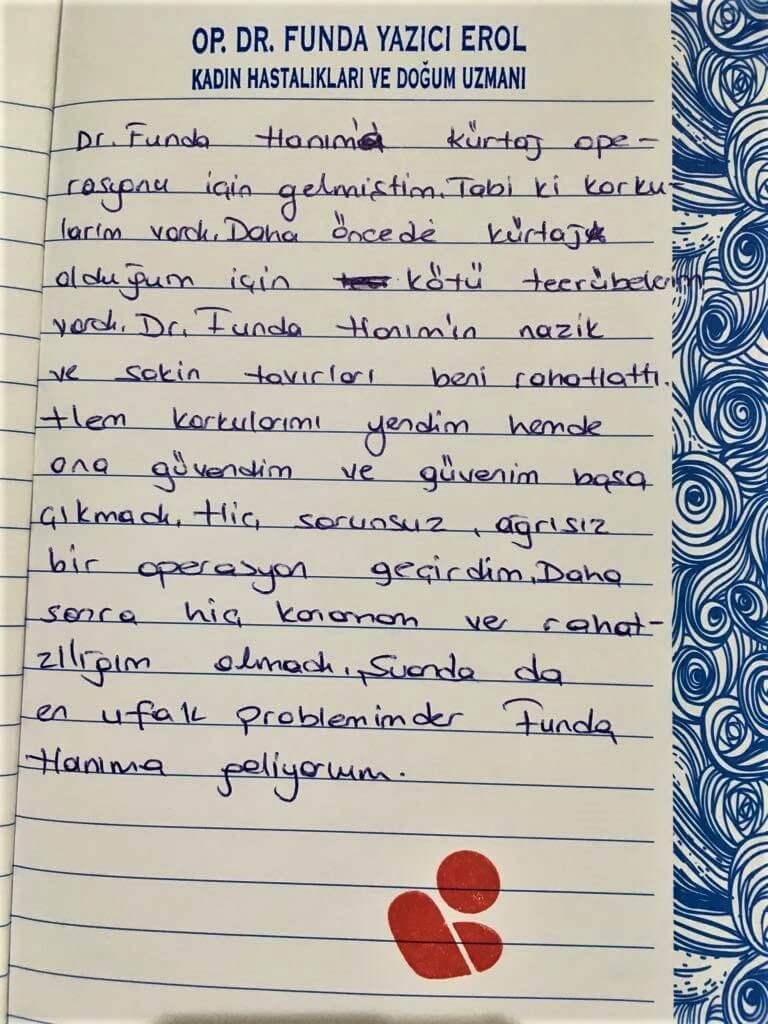 OP. DR. FUNDA YAZICI EROL
KADIN HASTALIKLARI VE DOĞUM UZMANI
Dr. Funda Hanım'a kürtaj ope-
rasyonu için gelmiştim. Tabi ki korku-
larım vardı. Daha öncede kürtaj
olduğum için kötü tecrübelerim
vardı. Dr. Funda Hanım'ın nazik
ve sakin tavırları beni rahatlattı.
Hem korkularımı yendim hemde
ona güvendim ve güvenim boşa
çıkmadı. Hiç sorunsuz, ağrısız
bir operasyon geçirdim. Daha
sonra hiç kanamam ve rahat-
zılığım olmadı. Şuanda da
en ufak problemimder Funda
Hanıma geliyorum.